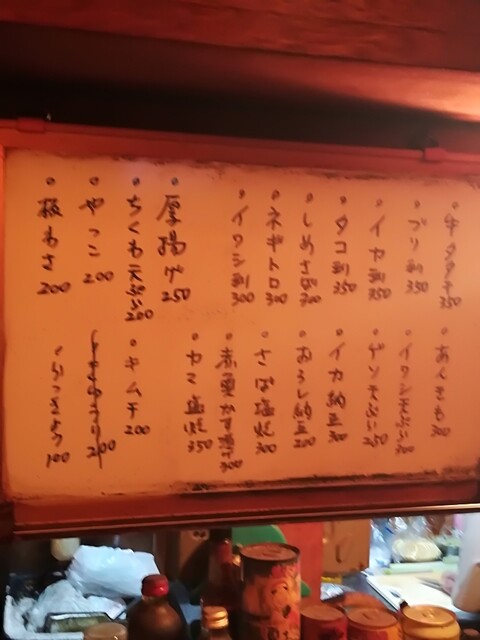 牛タタキ 350
ブリ刺 350
イカ刺 350
タコ刺 350
しめさば 300
ネギトロ 300
イワシ刺 300
厚揚げ 250
ちくわ天ぷら 200
やっこ 200
板わさ 200
あんきも 300
イワシ天ぷら 300
ゲソ天ぷら 250
イカ納豆 300
おろし納豆 200
さば塩焼 300
赤魚かす漬け 300
カマ塩焼 350
キムチ 200
200
らっきょう 100